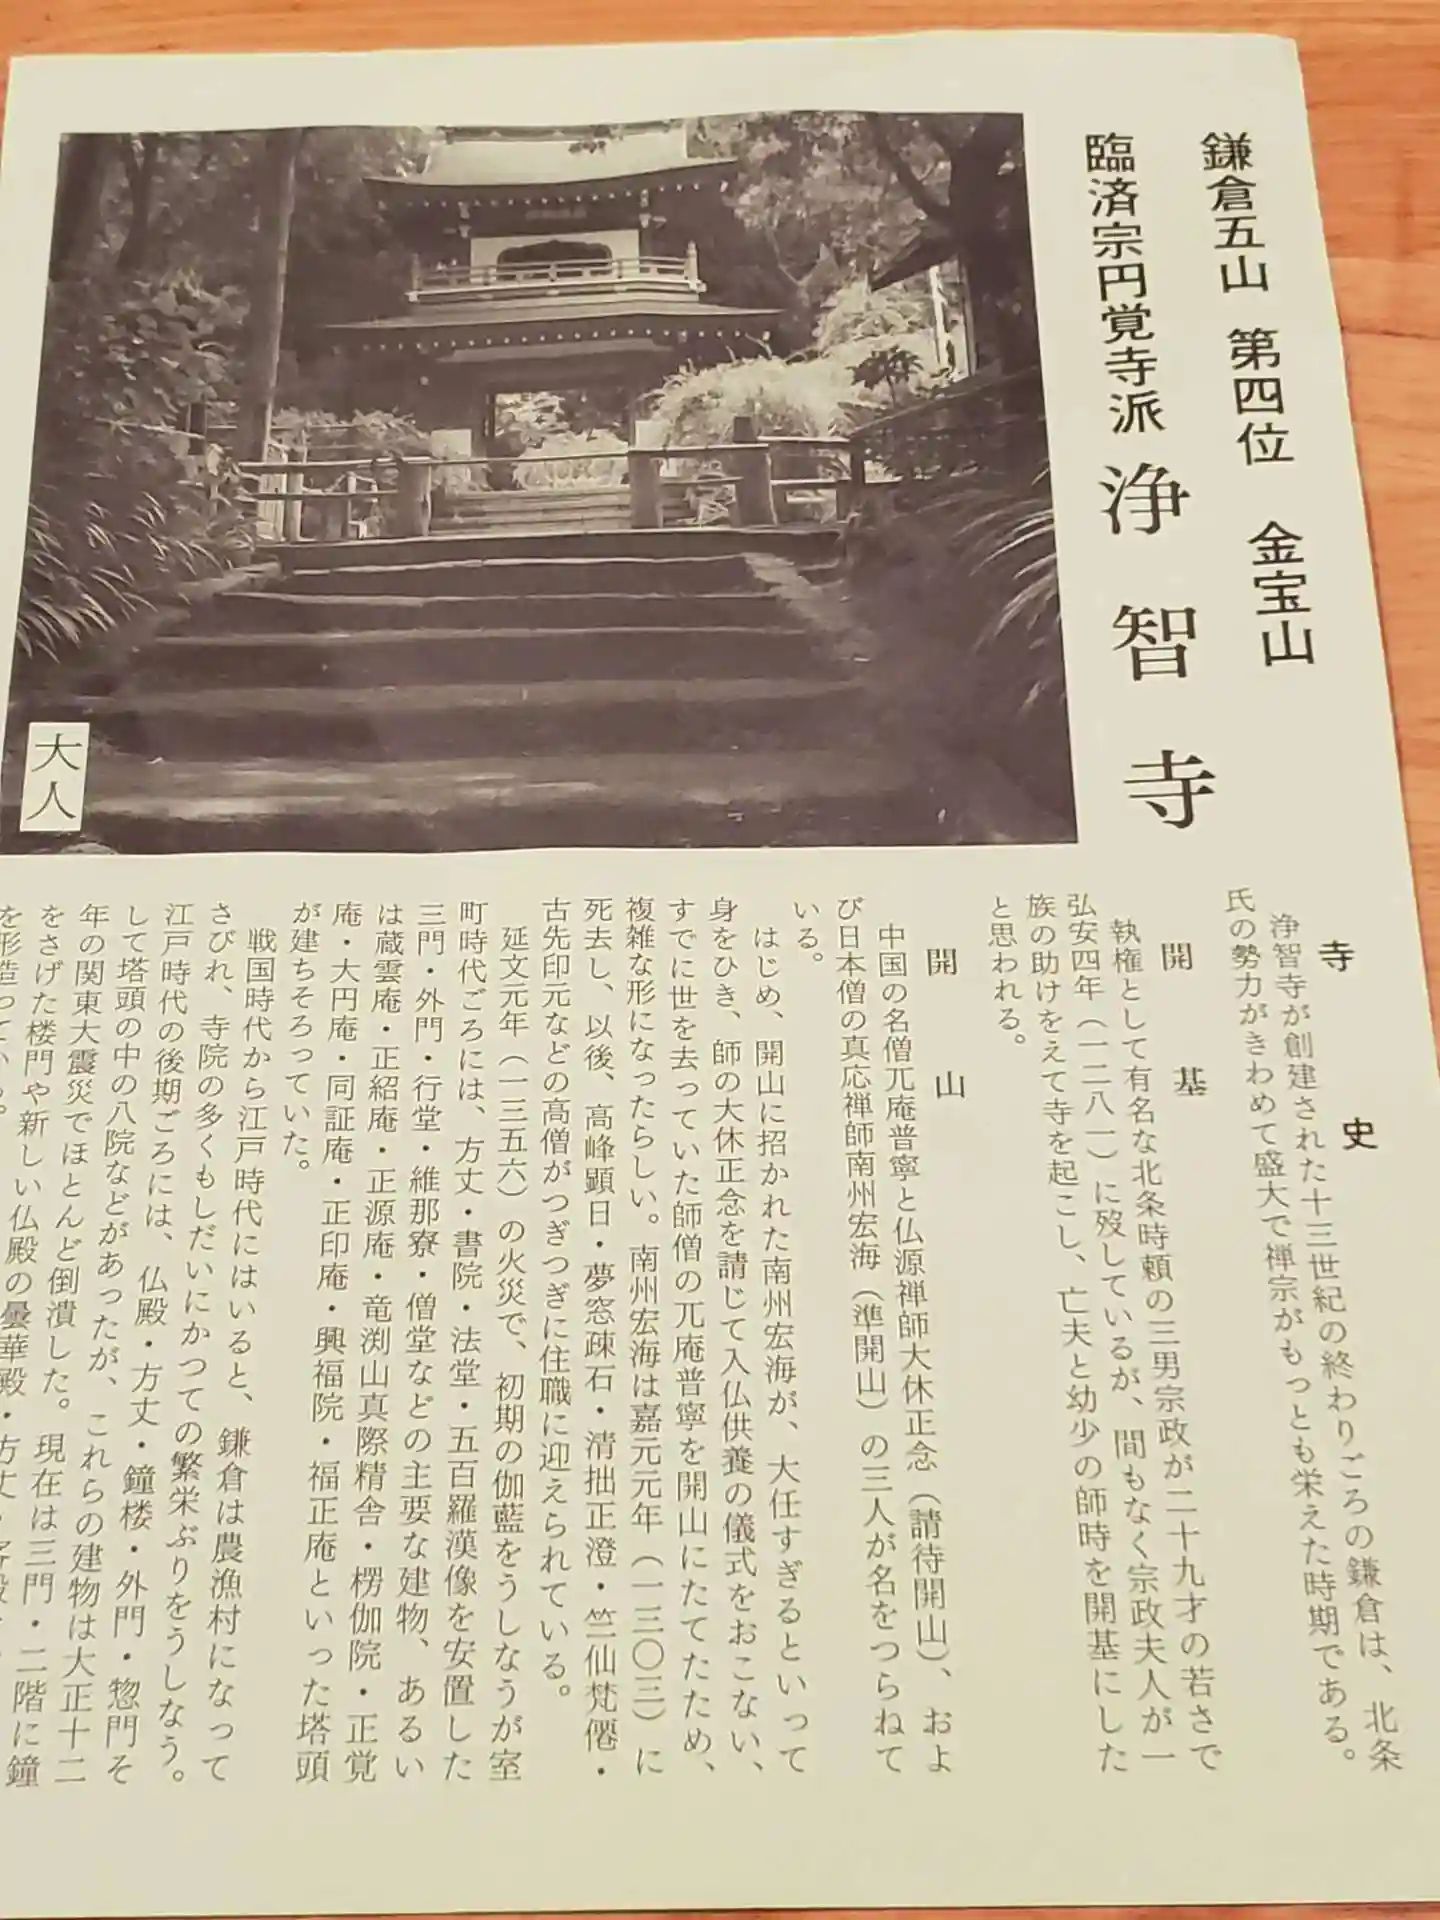 鎌倉五山 第四位 金宝山
臨済宗円覚寺派 浄智寺
大人
寺史
浄智寺が創建された十三世紀の終わりごろの鎌倉は、北条
氏の勢力がきわめて盛大で禅宗がもっとも栄えた時期である。
開基
執権として有名な北条時頼の三男宗政が二十九才の若さで
弘安四年（一二八一）に歿しているが、間もなく宗政夫人が一
族の助けをえて寺を起こし、亡夫と幼少の師時を開基にした
と思われる。
開山
中国の名僧兀庵普寧と仏源禅師大休正念（請待開山）、およ
び日本僧の真応禅師南州宏海（準開山）の三人が名をつらねて
いる。
はじめ、開山に招かれた南州宏海が、大任すぎるといって
身をひき、師の大休正念を請じて入仏供養の儀式をおこない、
すでに世を去っていた師僧の兀庵普寧を開山にたてたため、
複雑な形になったらしい。南州宏海は嘉元元年（一三〇三）に
死去し、以後、高峰顕日・夢窓疎石・清拙正澄・竺仙梵僊・
古先印元などの高僧がつぎつぎに住職に迎えられている。
延文元年（一三五六）の火災で、初期の伽藍をうしなうが室
町時代ごろには、方丈・書院・法堂・五百羅漢像を安置した
三門・外門・行堂・維那寮・僧堂などの主要な建物、あるい
は蔵雲庵・正紹庵・正源庵・竜渕山真際精舎・楞伽院・正覚
庵・大円庵・同証庵・正印庵・興福院・福正庵といった塔頭
が建ちそろっていた。
戦国時代から江戸時代にはいると、鎌倉は農漁村になって
さびれ、寺院の多くもしだいにかつての繁栄ぶりをうしなう。
江戸時代の後期ごろには、仏殿・方丈・鐘楼・外門・惣門そ
して塔頭の中の八院などがあったが、これらの建物は大正十二
年の関東大震災でほとんど倒潰した。現在は三門・二階に鐘
をさげた楼門や新しい仏殿の曇華殿・方丈・客殿
を形造っている。